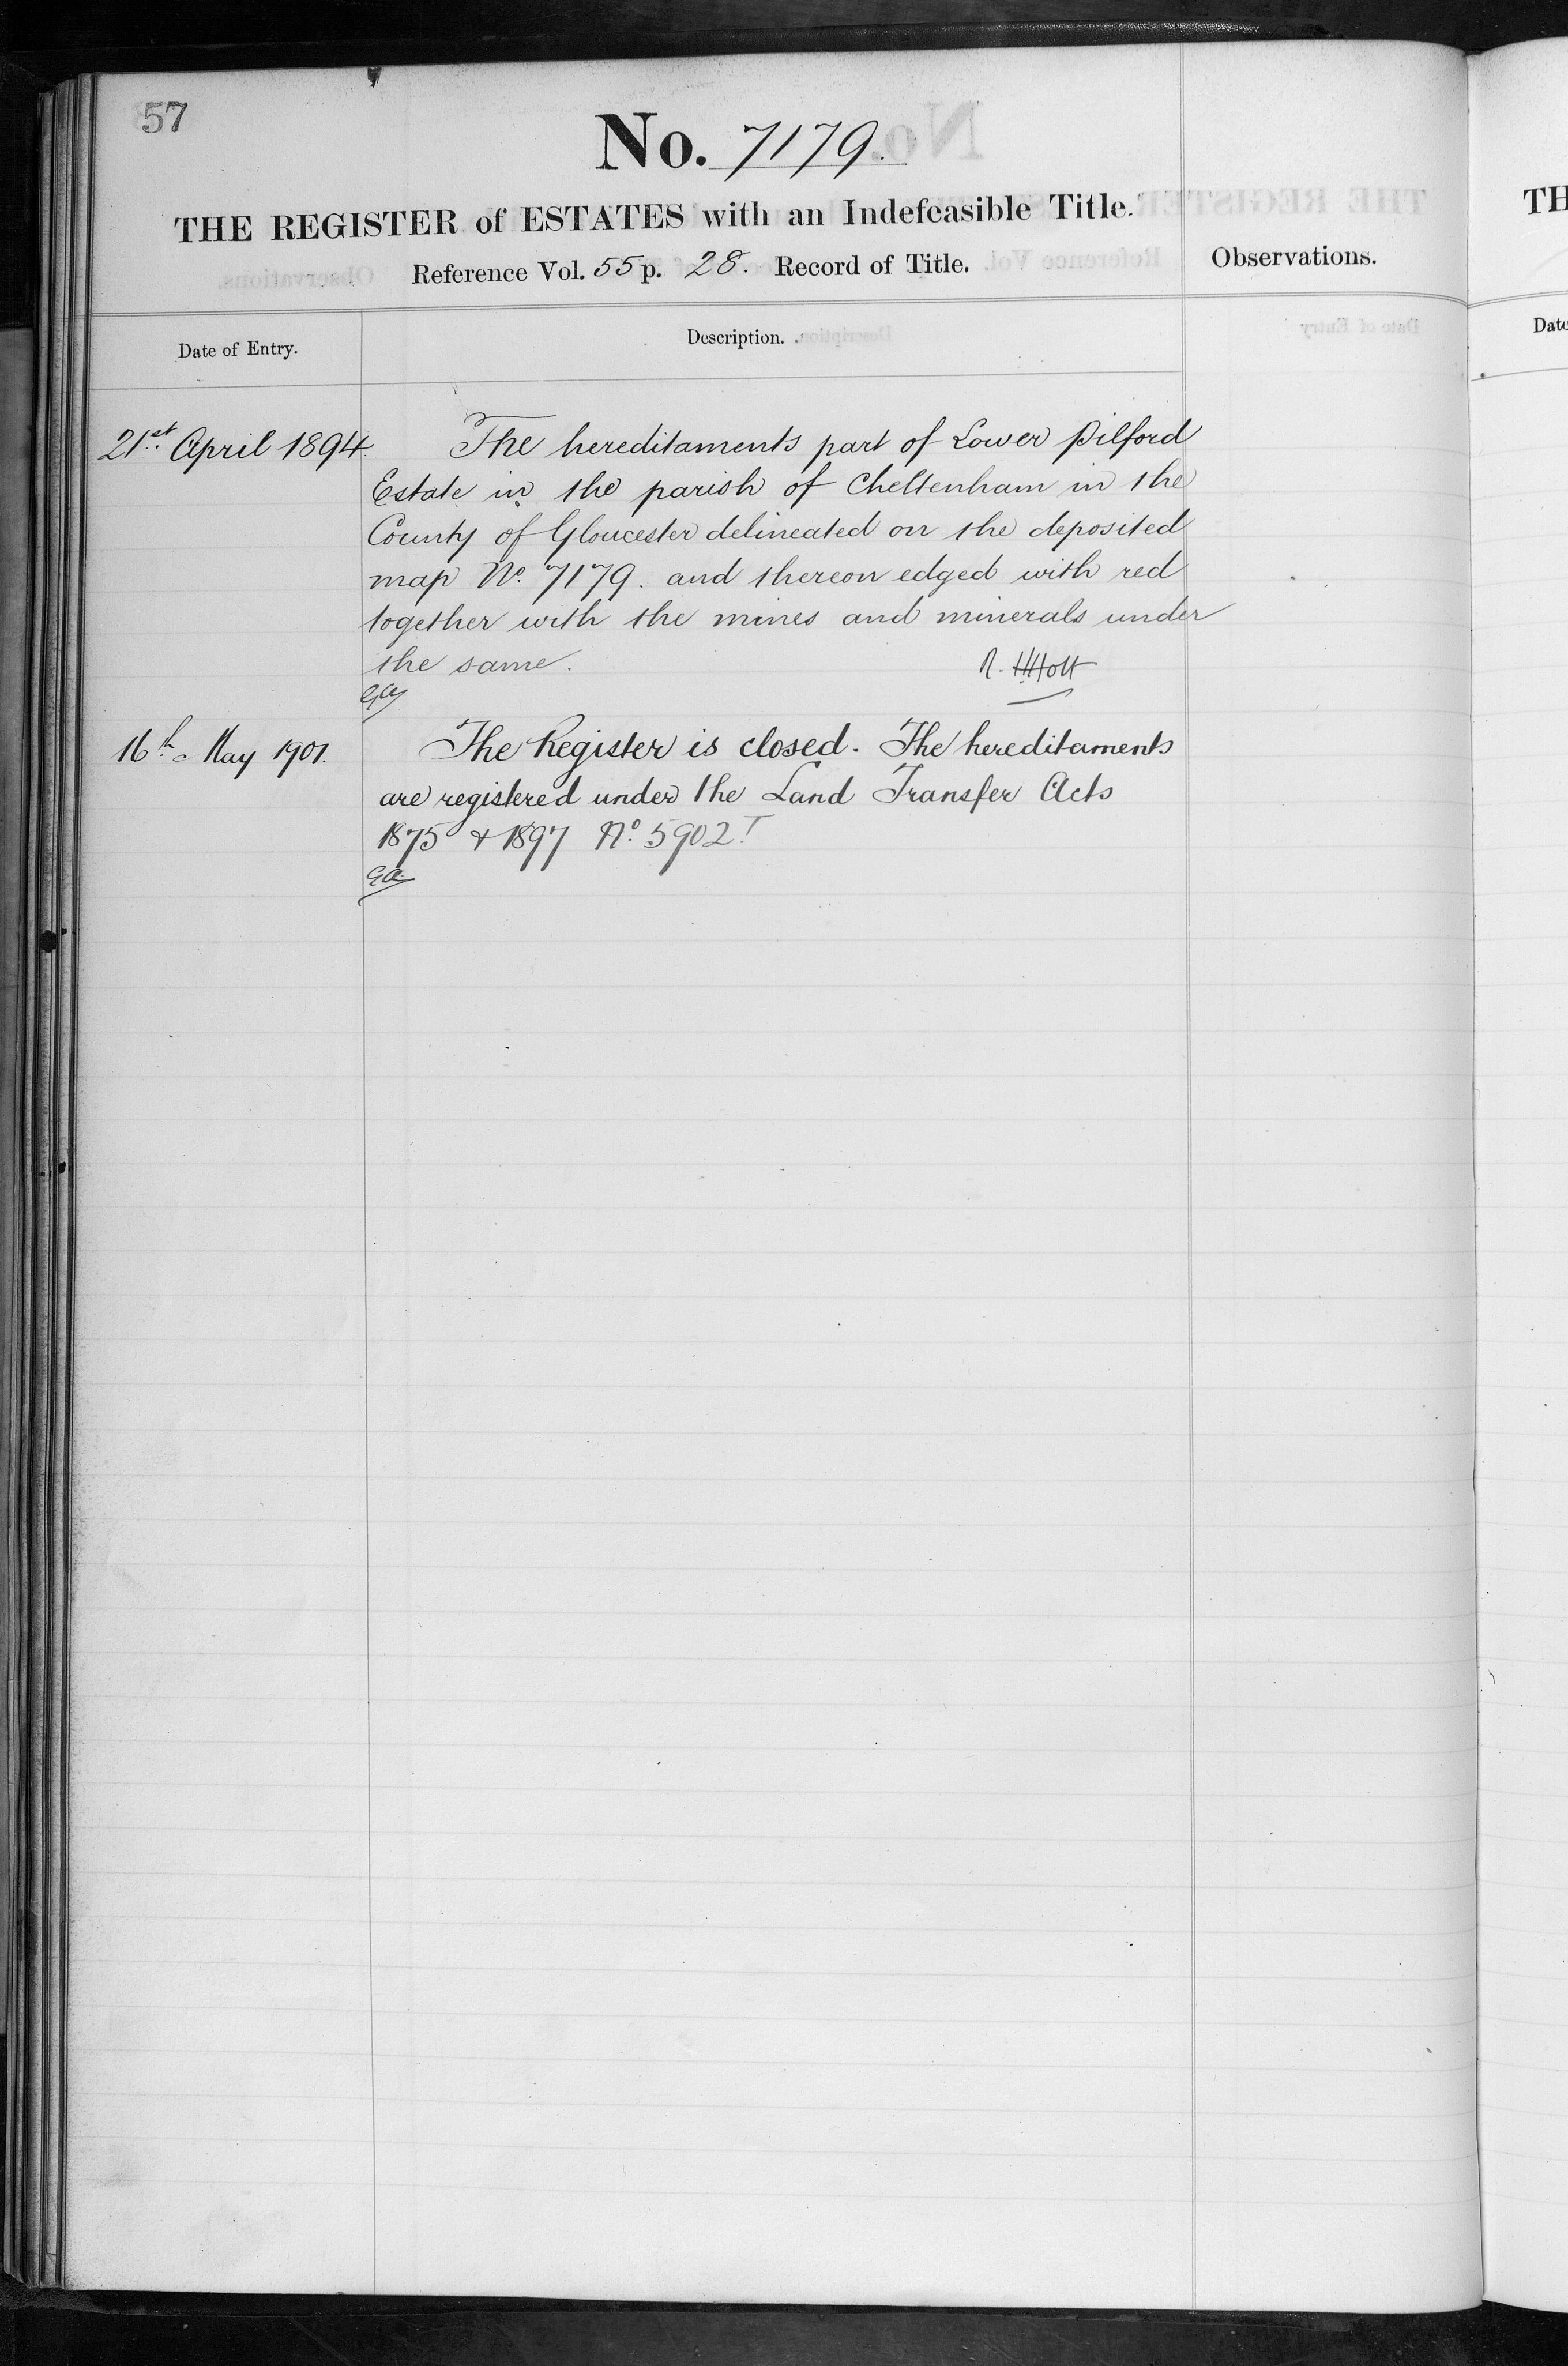 57
No. 7179.
THE REGISTER of ESTATES with an Indefeasible Title.
Reference Vol. 55 p. 28. Record of Title.
Observations.
Date of Entry.
Description.
21st April 1894.
The hereditaments part of Lower Pilford
Estate in the parish of Cheltenham in the
County of Gloucester delineated on the deposited
map No. 7179. and thereon edged with red
together with the mines and minerals under
the same.
16th May 1901.
The Register is closed. The hereditaments
are registered under the Land Transfer Acts
1875 & 1897 No. 5902T
TH
Date